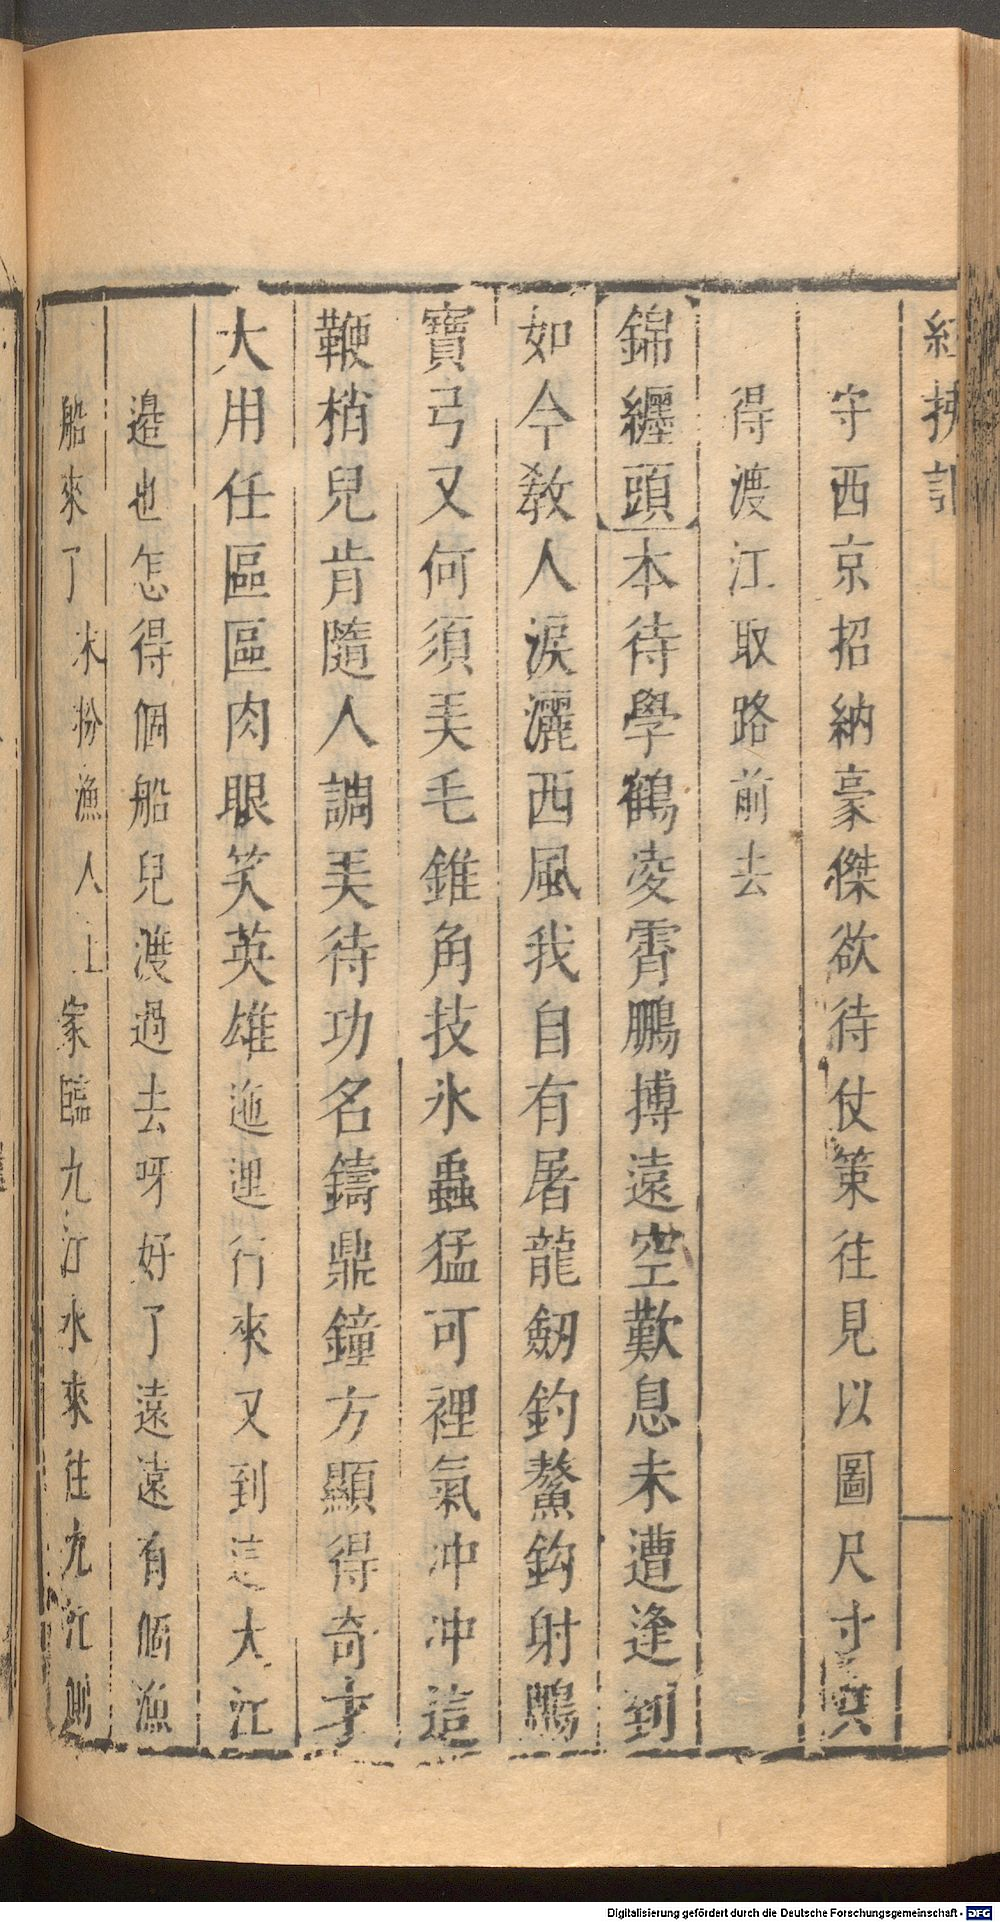 紅拂記
守西京招納豪傑欲待仗策往見以圖尺寸
得渡江取路前去
錦纏頭本待學鶴凌霄鵬搏遠空歎息未遭逢到
如今教人淚灑西風我自有屠龍劒釣鰲鈎射鵰
寶弓又何須弄毛錐角技氷蟲猛可裡氣冲冲這
鞭梢兒肯隨人調弄待功名鑄鼎鐘方顯得奇才
大用任區區肉眼笑英雄迤逗行來又到這大江
邉也怎得個船兒渡過去呀好了遠遠有個漁
船來了末扮漁人上家臨九江水來往九江側
Digitalisierung gefördert durch die Deutsche Forschungsgemeinschaft - DFG